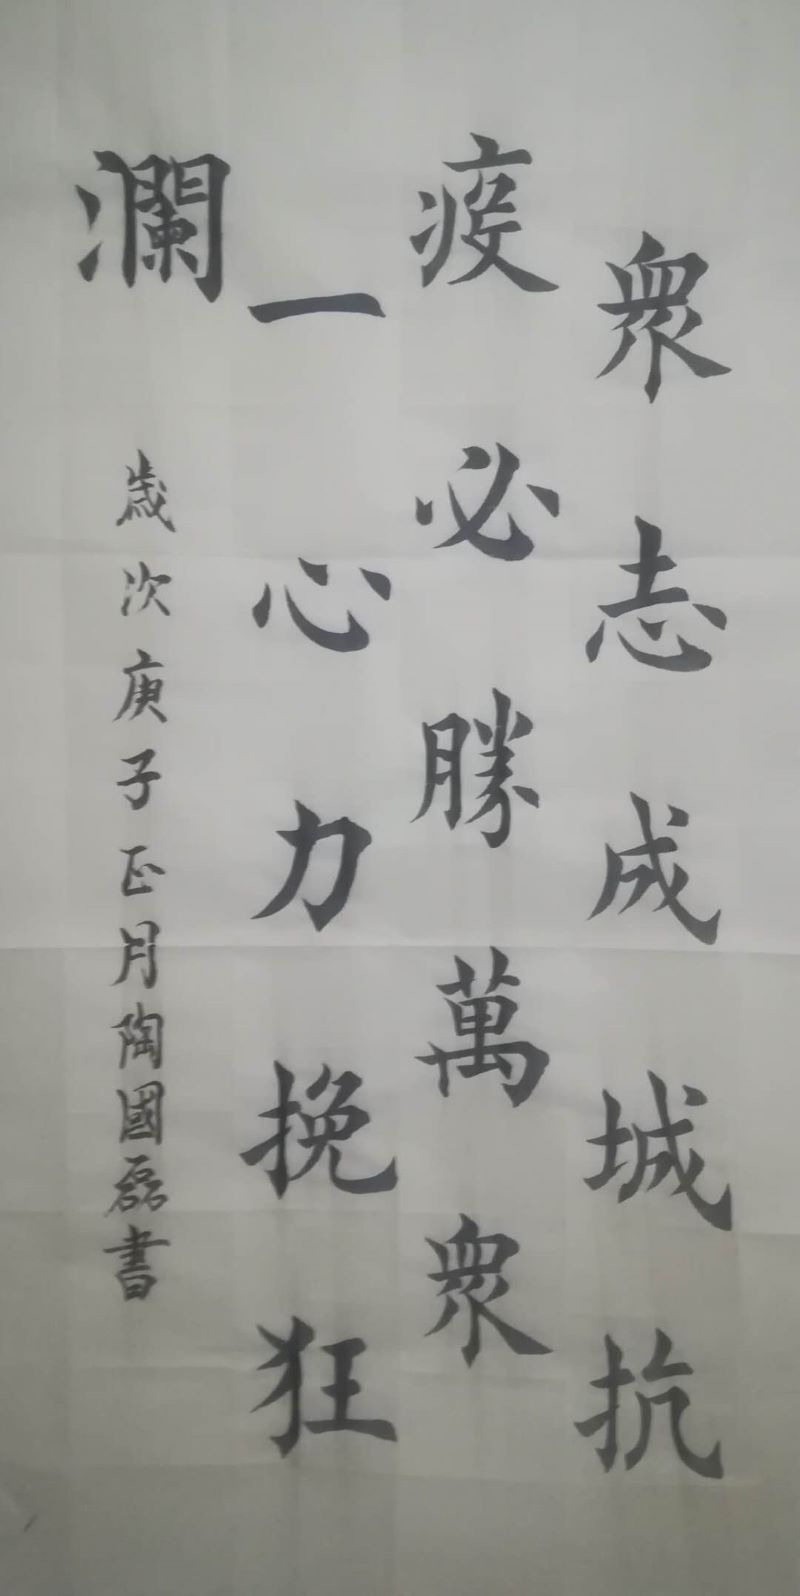 衆志成城抗
疫必勝萬衆
一心力挽狂
瀾
歲次庚子正月陶國磊書